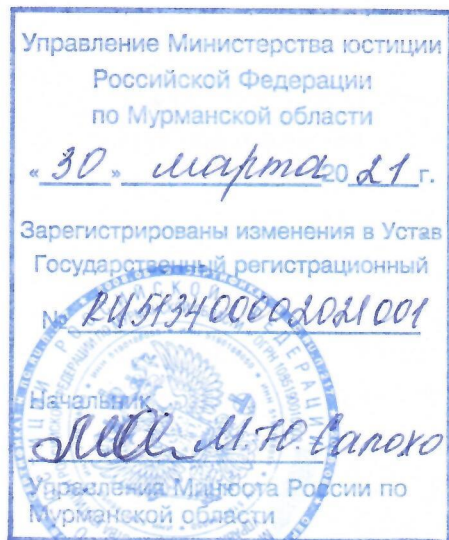 Управление Министерства юстиции
Российской Федерации
по Мурманской области
« 30 » марта 20 21 г.
Зарегистрированы изменения в Устав
Государственный регистрационный
№ RU513400002021001
Начальник
М.Ю. Сапохо
Управления Минюста России по
Мурманской области